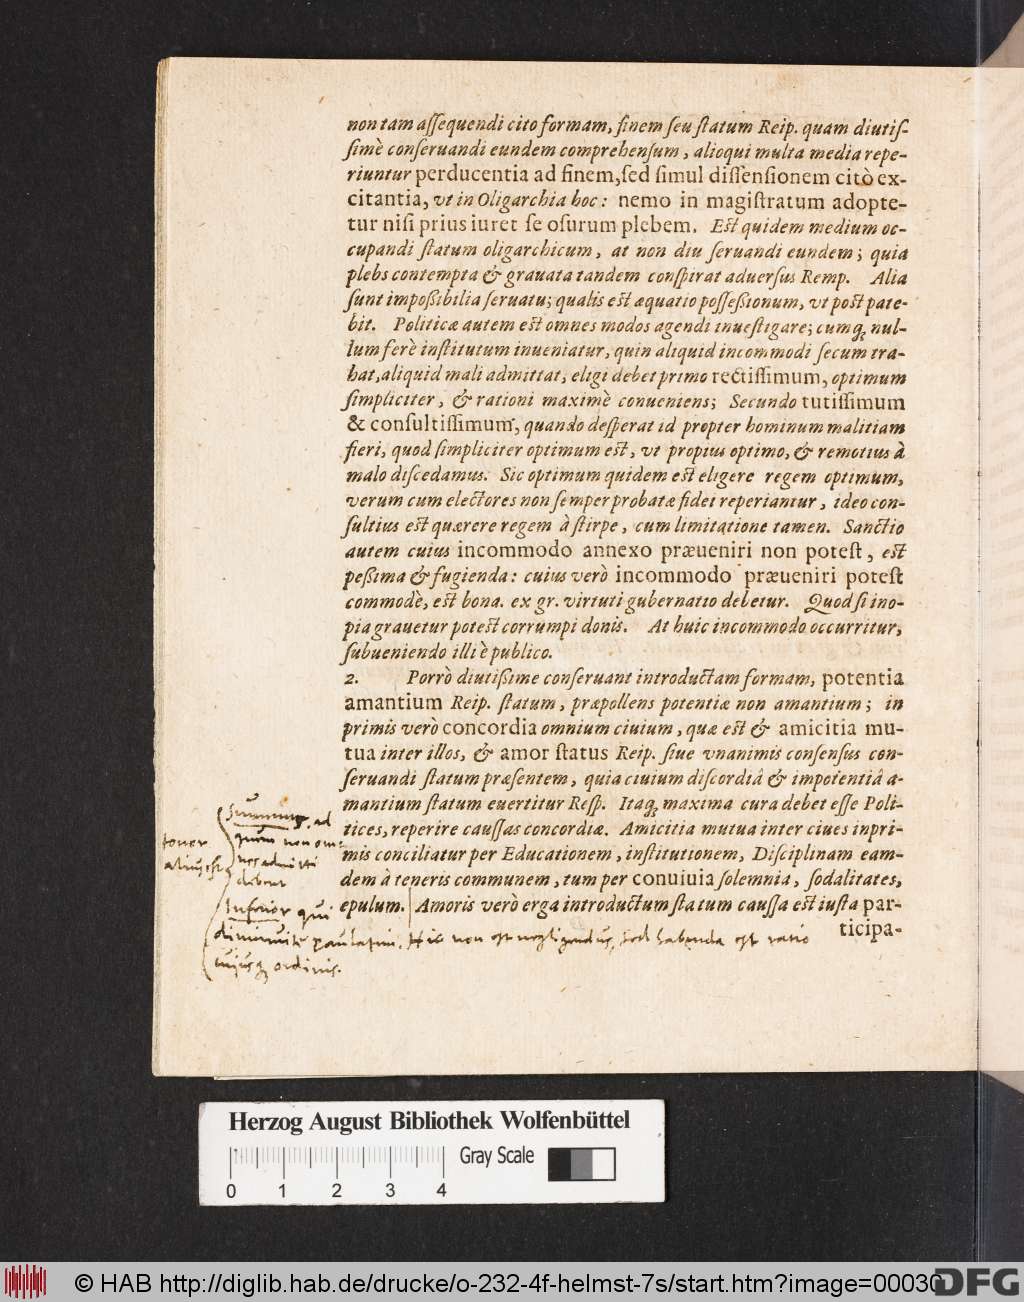 non tam aſſequendi cito formam, finem ſeu ſtatum Reip. quam diutiſ-
ſimè conſeruandi eundem comprehenſum, alioqui multa media repe-
riuntur perducentia ad finem, ſed ſimul diſſenſionem citò ex-
citantia, vt in Oligarchia hoc: nemo in magiſtratum adopte-
tur niſi prius iuret ſe oſurum plebem. Eſt quidem medium oc-
cupandi ſtatum oligarchicum, at non diu ſeruandi eundem; quia
plebs contempta & grauata tandem conſpirat aduerſus Remp. Alia
ſunt impoßibilia ſeruatu; qualis eſt æquatio poſſeßionum, vt poſt pate-
bit. Politicæ autem eſt omnes modos agendi inueſtigare; cumq; nul-
lum ferè inſtitutum inueniatur, quin aliquid incommodi ſecum tra-
hat, aliquid mali admittat, eligi debet primo rectiſſimum, optimum
ſimpliciter, & rationi maximè conueniens; Secundo tutiſſimum
& conſultiſſimum, quando deſperat id propter hominum malitiam
fieri, quod ſimpliciter optimum eſt, vt propius optimo, & remotius à
malo diſcedamus. Sic optimum quidem eſt eligere regem optimum,
verum cum electores non ſemper probatæ fidei reperiantur, ideo con-
ſultius eſt quærere regem à ſtirpe, cum limitatione tamen. Sanctio
autem cuius incommodo annexo præueniri non poteſt, eſt
peßima & fugienda: cuius verò incommodo præueniri poteſt
commodè, eſt bona. ex gr. virtuti gubernatio debetur. Quod ſi ino-
pia grauetur poteſt corrumpi donis. At huic incommodo occurritur,
ſubueniendo illi è publico.
2. Porrò diutißime conſeruant introductam formam, potentia
amantium Reip. ſtatum, præpollens potentiæ non amantium; in
primis verò concordia omnium ciuium, quæ eſt & amicitia mu-
tua inter illos, & amor ſtatus Reip. ſiue vnanimis conſenſus con-
ſeruandi ſtatum præſentem, quia ciuium diſcordiâ & impotentiâ a-
mantium ſtatum euertitur Reſp. Itaq; maxima cura debet eſſe Poli-
tices, reperire cauſſas concordiæ. Amicitia mutua inter ciues inpri-
mis conciliatur per Educationem, inſtitutionem, Diſciplinam eam-
dem à teneris communem, tum per conuiuia ſolemnia, ſodalitates,
epulum. Amoris verò erga introductum ſtatum cauſſa eſt iuſta par-
ticipa-
Summus, ad
quem non om-
nes admitti
debent
Inferior qui
paulatim. Hic non est negligendus, sed habenda est ratio
cujusq; ordinis.
Herzog August Bibliothek Wolfenbüttel
Gray Scale
0 1 2 3 4
© HAB http://diglib.hab.de/drucke/o-232-4f-helmst-7s/start.htm?image=00030
DFG